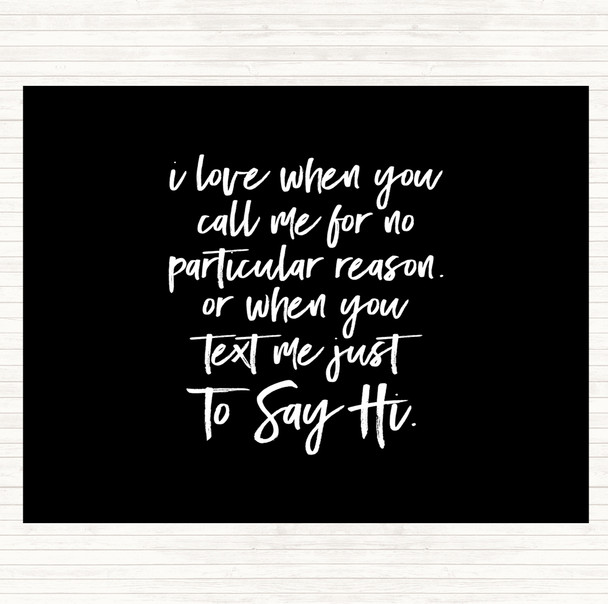 i love when you
call me for no
particular reason.
or when you
text me just
To Say Hi.